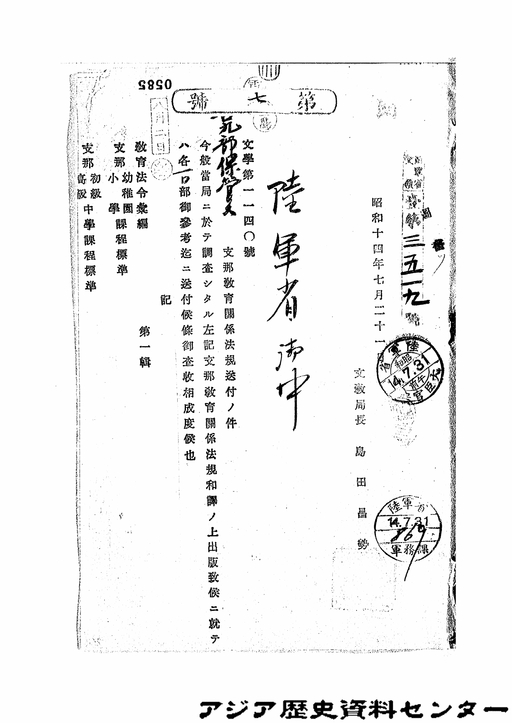 0585
第七號
八月二日
陸軍省
文第三五一九號
昭和十四年七月二十一
文教局長 島田昌勢
陸軍省御中
文學第一一四〇號
支那教育關係法規送付ノ件
今般當局ニ於テ調査シタル左記支那教育關係法規和譯ノ上出版致候ニ就テ
ハ各一部御參考迄ニ送付候條御査收相成度候也
記
教育法令彙編 第一輯
支那幼稚園小學課程標準
支那初級高級中學課程標準
陸軍省
昭和
14.7.31
大臣官房
陸軍省
14.7.31
軍務課
アジア歴史資料センター